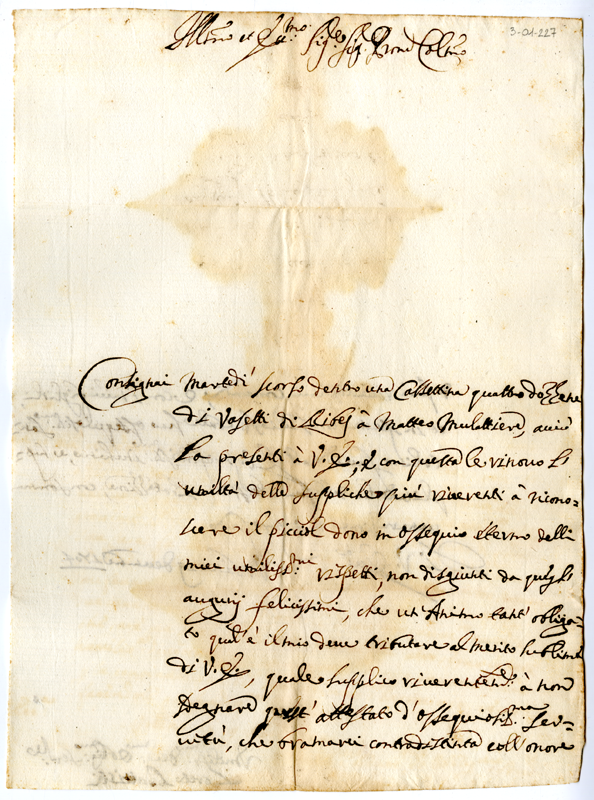 3-01-227
Illmo et Ecc.mo Sig.re Sig.r Pron Colmo
Consignai Martedi scorso dentro una Cassettina quattro dozzene
di Vasetti di Ribes à Matteo Mulattiere, acciò
la presenti à V.E., e con questa le rinovo l'
umiltà delle suppliche più riverenti à ricono=
scere il picciol dono in ossequio eterno delli
miei umiliss.mi rispetti, non disgiunti da quegli
augurij felicissimi, che un'Animo tant'obliga=
to qual'è il mio deve tributare al merito sublime
di V.E., quale supplico riverentem.te à non
sdegnare quest'attestato d'ossequiosiss.ma ser=
vitù, che bramarei contradistinta coll'onore